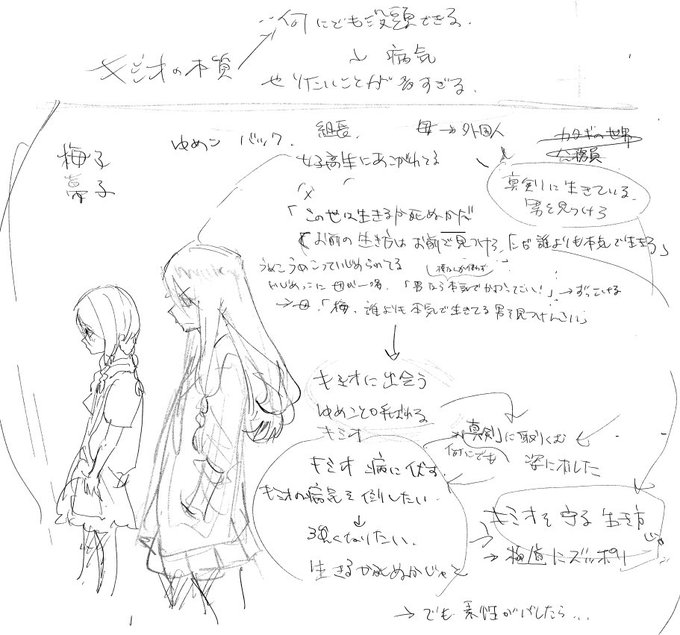 キミオの本質
何にでも没頭できる。
↓ 病気
やりたいことが多すぎる。
梅子
ゆめこ バック。
組長。
母→外国人
カタギの世界
公務員
女子高生にあこがれてる
真剣に生きている。
男を見つけろ
「この世は生きるか死ぬかだ
お前の生き方はお前で見つけろ、ただ誰よりも本気で生きろ」
うめこうめこっていじめられてる
いじめっこに母が一喝、「男なら本気でかかってこい!」→ずっこける
→母、「梅、誰よりも本気で生きてる男を見つけんさい」
↓
キミオに出会う
ゆめことよばれる
キミオ
「真剣」に取りくむ
何にでも
姿にホレた
キミオ 病に伏す。
キミオの病気を倒したい。
↓
強くなりたい。
生きるか死ぬかじゃと
キミオを守る生き方
→極道にズッポリ
→でも素性がバレたら…